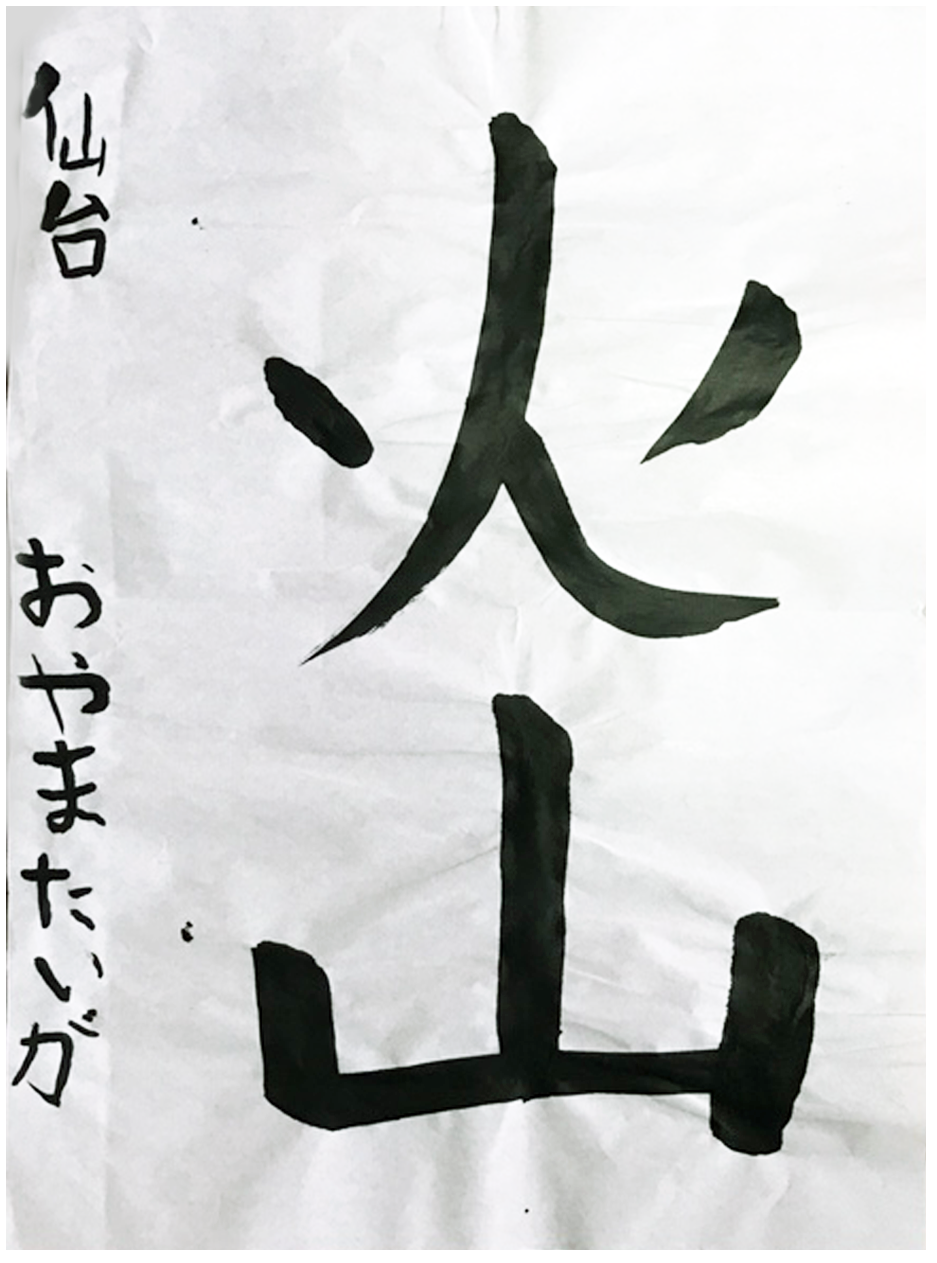 火山
仙台 おやまたいが